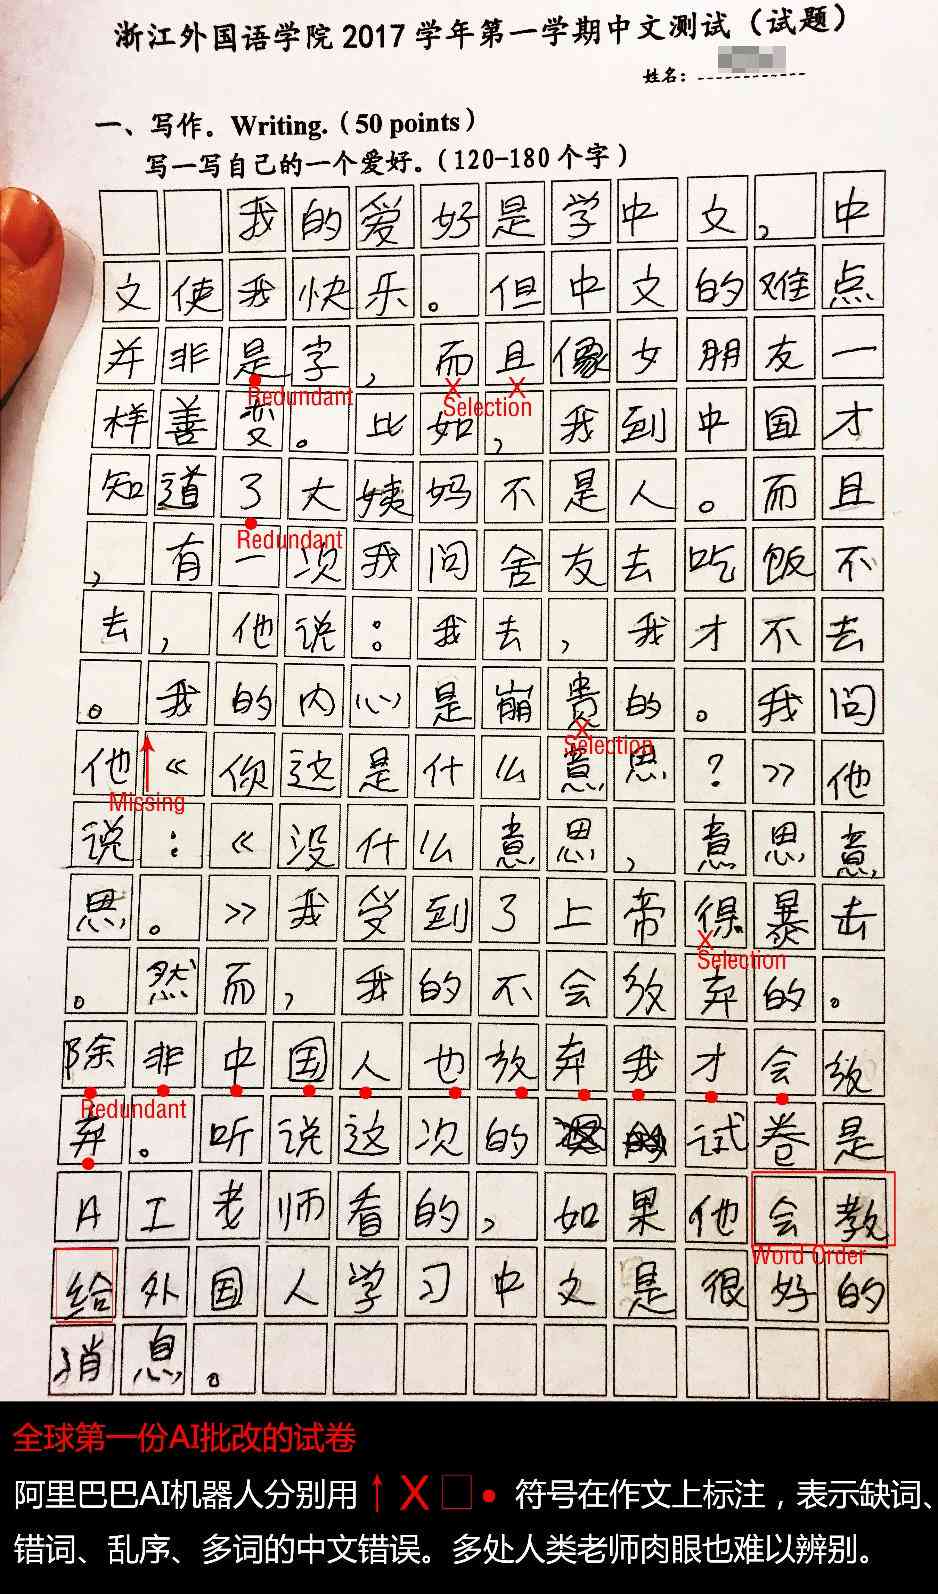 浙江外国语学院 2017 学年第一学期中文测试（试题）
姓名：
一、写作。Writing.（50 points）
写一写自己的一个爱好。（120-180 个字）
我的爱好是学中文，中
文使我快乐。但中文的难点
并非是字，而且像女朋友一
Redundant
Selection
样善变。比如，我到中国才
知道了大姨妈不是人。而且
Redundant
，有一次我问舍友去吃饭不
去，他说：我去，我才不去
。我的内心是崩贵的。我问
Selection
他《你这是什么意思？》他
Missing
说：《没什么意思，意思意
思。》我受到了上帝得暴击
Selection
。然而，我的不会放弃的。
除非中国人也放弃我才会放
Redundant
弃。听说这次的试卷是
AI老师看的，如果他会教
Word Order
给外国人学习中文是很好的
消息。
全球第一份AI批改的试卷
阿里巴巴AI机器人分别用↑X□● 符号在作文上标注，表示缺词、
错词、乱序、多词的中文错误。多处人类老师肉眼也难以辨别。